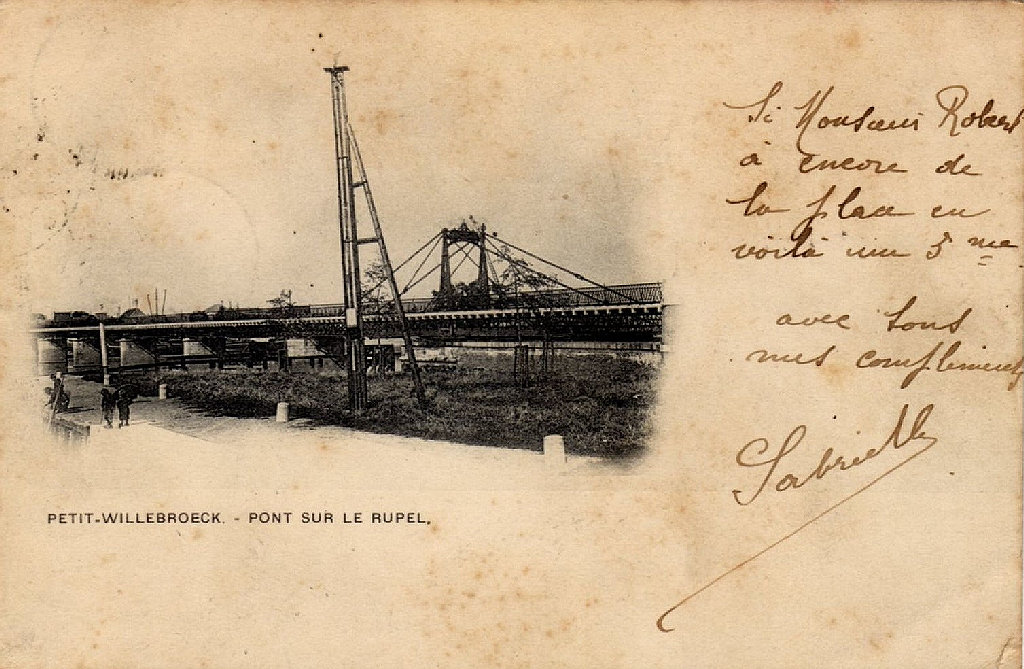 PETIT-WILLEBROECK. - PONT SUR LE RUPEL.
Si Monsieur Robert
à encore de
la place en
voila une 5 me
avec tous
mes compliments
Gabrielle